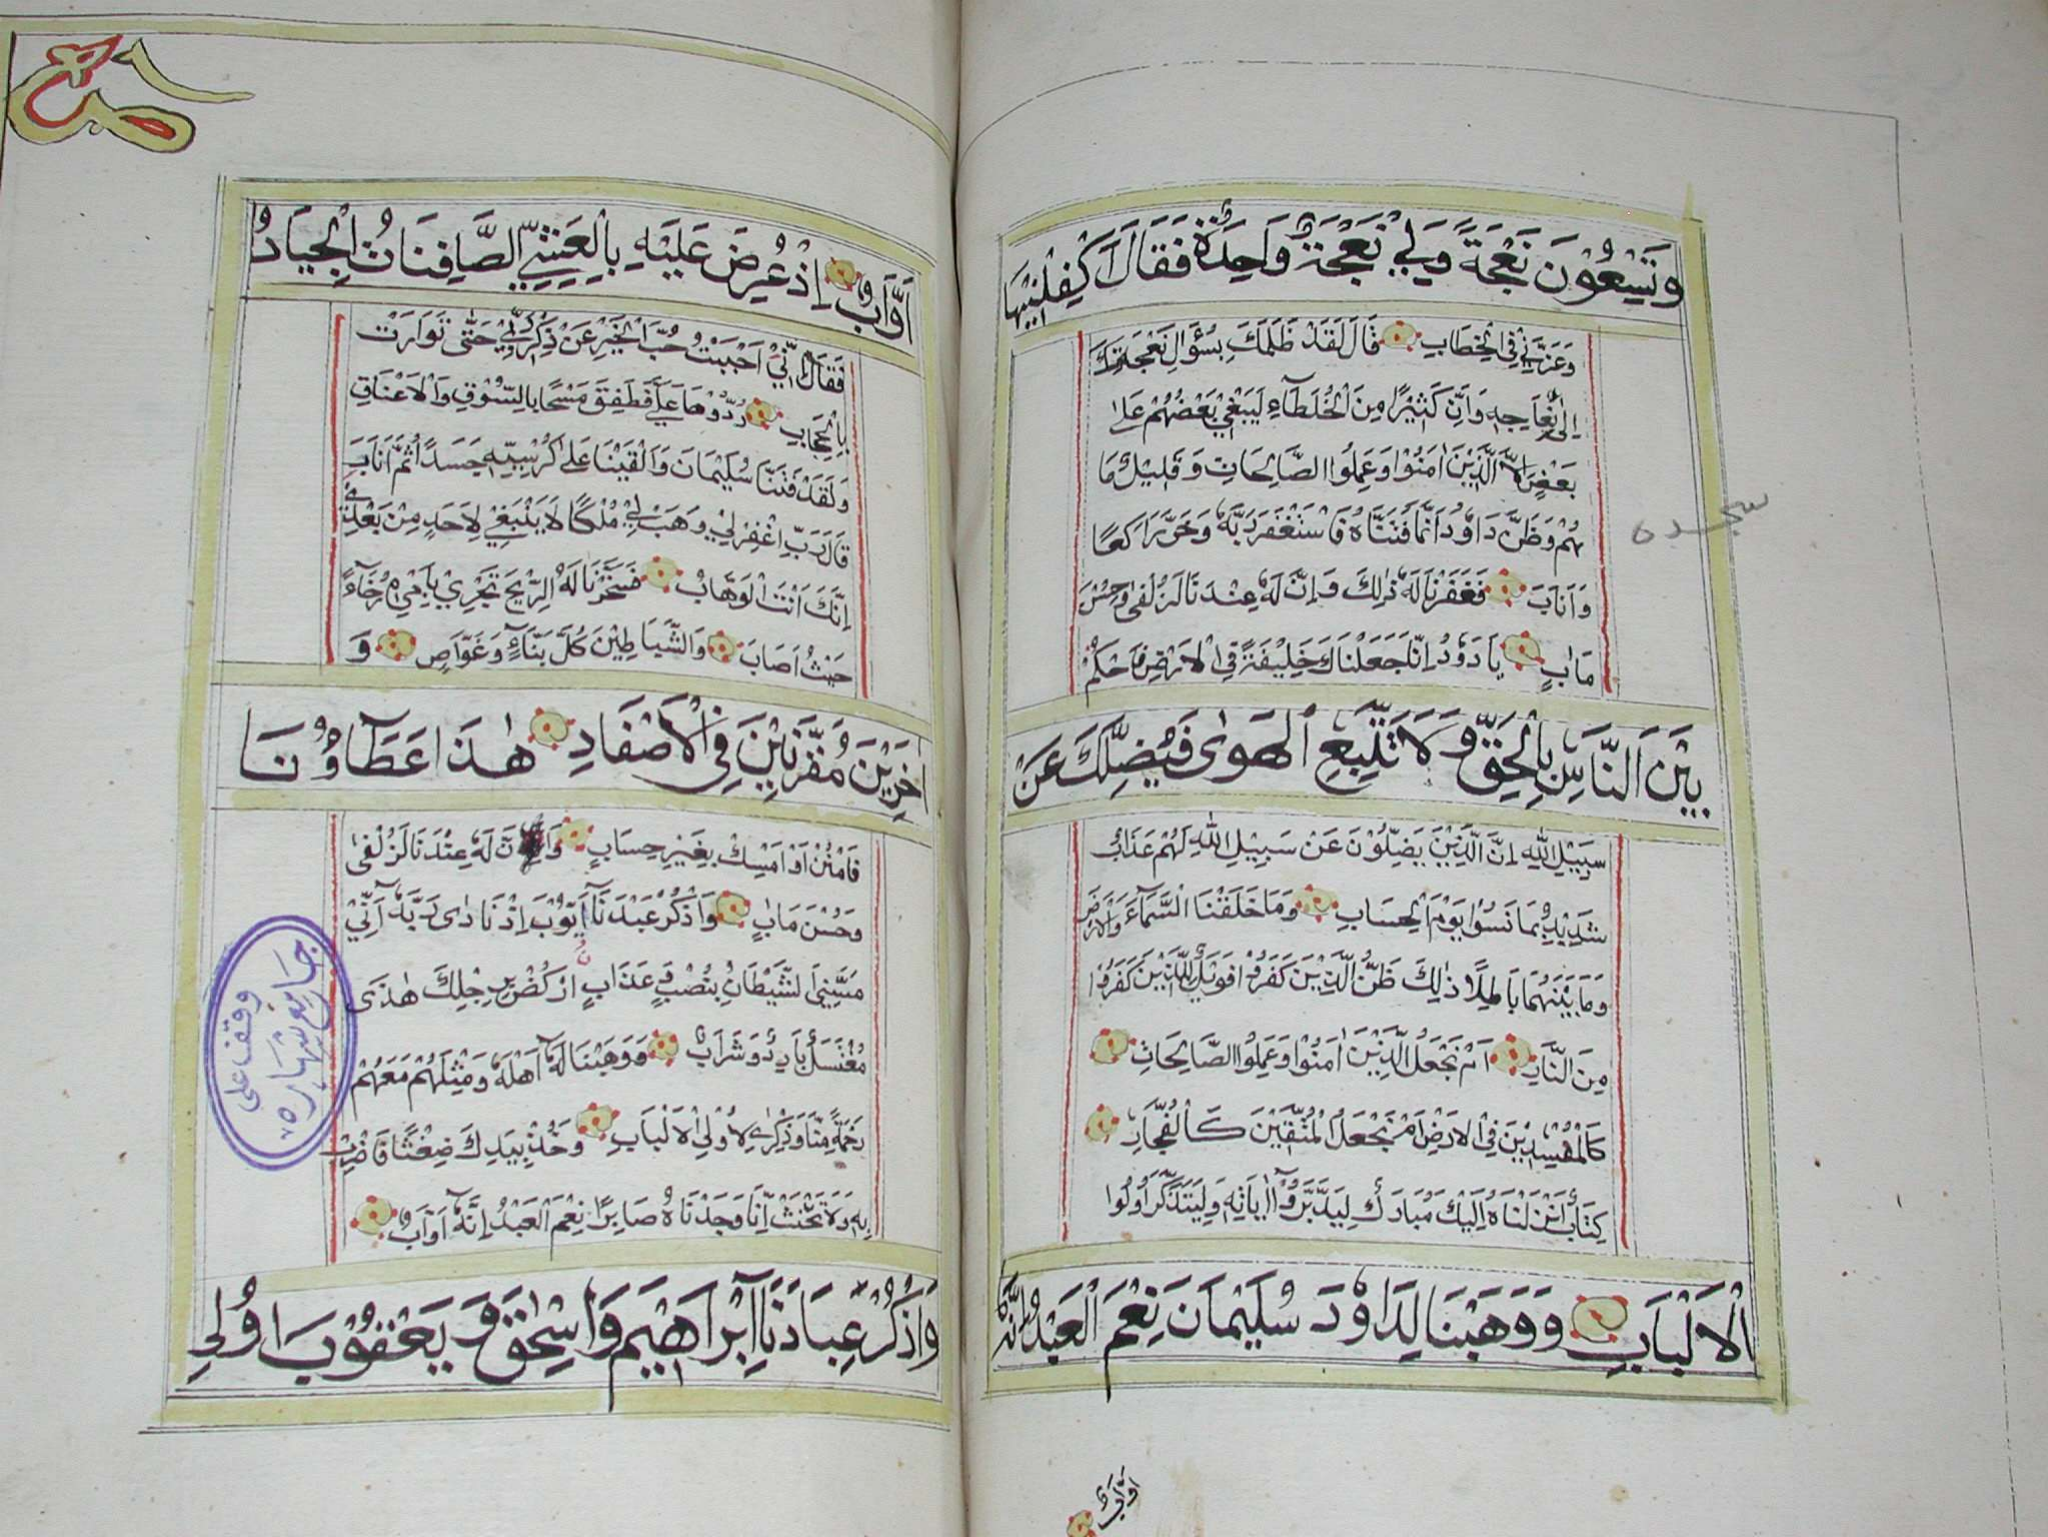 وَتِسْعُوْنَ نَعْجَةً وَلِيْ نَعْجَةٌ وَاحِدَةٌ فَقَالَ اَكْفِلْنِيْهَا
وَعَزَّنِيْ فِي الْخِطَابِ قَالَ لَقَدْ ظَلَمَكَ بِسُؤَالِ نَعْجَتِكَ
اِلىٰ نِعَاجِهٖ وَاِنَّ كَثِيْرًا مِنَ الْخُلَطَآءِ لَيَبْغِيْ بَعْضُهُمْ عَلىٰ
بَعْضٍ اِلَّا الَّذِيْنَ اٰمَنُوْا وَعَمِلُوا الصَّالِحَاتِ وَقَلِيْلٌ مَا
هُمْ وَظَنَّ دَاوٗدُ اَنَّمَا فَتَنَّاهُ فَاسْتَغْفَرَ رَبَّهٗ وَخَرَّ رَاكِعًا
وَاَنَابَ فَغَفَرْنَا لَهٗ ذٰلِكَ وَاِنَّ لَهٗ عِنْدَنَا لَزُلْفىٰ وَحُسْنَ
مَاٰبٍ يَا دَاوٗدُ اِنَّا جَعَلْنَاكَ خَلِيْفَةً فِي الْاَرْضِ فَاحْكُمْ
بَيْنَ النَّاسِ بِالْحَقِّ وَلَا تَتَّبِعِ الْهَوٰى فَيُضِلَّكَ عَنْ
سَبِيْلِ اللّٰهِ اِنَّ الَّذِيْنَ يَضِلُّوْنَ عَنْ سَبِيْلِ اللّٰهِ لَهُمْ عَذَابٌ
شَدِيْدٌ بِمَا نَسُوْا يَوْمَ الْحِسَابِ وَمَا خَلَقْنَا السَّمَآءَ وَالْاَرْضَ
وَمَا بَيْنَهُمَا بَاطِلًا ذٰلِكَ ظَنُّ الَّذِيْنَ كَفَرُوْا فَوَيْلٌ لِلَّذِيْنَ كَفَرُوْا
مِنَ النَّارِ اَمْ نَجْعَلُ الَّذِيْنَ اٰمَنُوْا وَعَمِلُوا الصَّالِحَاتِ
كَالْمُفْسِدِيْنَ فِي الْاَرْضِ اَمْ نَجْعَلُ الْمُتَّقِيْنَ كَالْفُجَّارِ
كِتَابٌ اَنْزَلْنَاهُ اِلَيْكَ مُبَارَكٌ لِيَدَّبَّرُوْا اٰيَاتِهٖ وَلِيَتَذَكَّرَ اُولُوا
الْاَلْبَابِ وَوَهَبْنَا لِدَاوٗدَ سُلَيْمَانَ نِعْمَ الْعَبْدُ اِنَّهٗ
اَوَّابٌ
سجده
ص
اَوَّابٌ اِذْ عُرِضَ عَلَيْهِ بِالْعَشِيِّ الصَّافِنَاتُ الْجِيَادُ
فَقَالَ اِنِّيْ اَحْبَبْتُ حُبَّ الْخَيْرِ عَنْ ذِكْرِ رَبِّيْ حَتّٰى تَوَارَتْ
بِالْحِجَابِ رُدُّوْهَا عَلَيَّ فَطَفِقَ مَسْحًا بِالسُّوْقِ وَالْاَعْنَاقِ
وَلَقَدْ فَتَنَّا سُلَيْمَانَ وَاَلْقَيْنَا عَلىٰ كُرْسِيِّهٖ جَسَدًا ثُمَّ اَنَابَ
قَالَ رَبِّ اغْفِرْ لِيْ وَهَبْ لِيْ مُلْكًا لَا يَنْبَغِيْ لِاَحَدٍ مِنْ بَعْدِيْ
اِنَّكَ اَنْتَ الْوَهَّابُ فَسَخَّرْنَا لَهُ الرِّيْحَ تَجْرِيْ بِاَمْرِهٖ رُخَآءً
حَيْثُ اَصَابَ وَالشَّيَاطِيْنَ كُلَّ بَنَّآءٍ وَغَوَّاصٍ وَ
اٰخَرِيْنَ مُقَرَّنِيْنَ فِي الْاَصْفَادِ هٰذَا عَطَآؤُنَا
فَامْنُنْ اَوْ اَمْسِكْ بِغَيْرِ حِسَابٍ وَاِنَّ لَهٗ عِنْدَنَا لَزُلْفىٰ
وَحُسْنَ مَاٰبٍ وَاذْكُرْ عَبْدَنَآ اَيُّوْبَ اِذْ نَادٰى رَبَّهٗٓ اَنِّيْ
مَسَّنِيَ الشَّيْطَانُ بِنُصْبٍ وَعَذَابٍ اُرْكُضْ بِرِجْلِكَ هٰذَى
مُغْتَسَلٌ بَارِدٌ وَشَرَابٌ وَوَهَبْنَا لَهٗٓ اَهْلَهٗ وَمِثْلَهُمْ مَعَهُمْ
رَحْمَةً مِنَّا وَذِكْرٰى لِاُولِي الْاَلْبَابِ وَخُذْ بِيَدِكَ ضِغْثًا فَاضْرِبْ
بِهٖ وَلَا تَحْنَثْ اِنَّا وَجَدْنَاهُ صَابِرًا نِعْمَ الْعَبْدُ اِنَّهٗٓ اَوَّابٌ
وَاذْكُرْ عِبَادَنَآ اِبْرَاهِيْمَ وَاِسْحٰقَ وَيَعْقُوْبَ اُولِي
وقف على
جامع شهاره